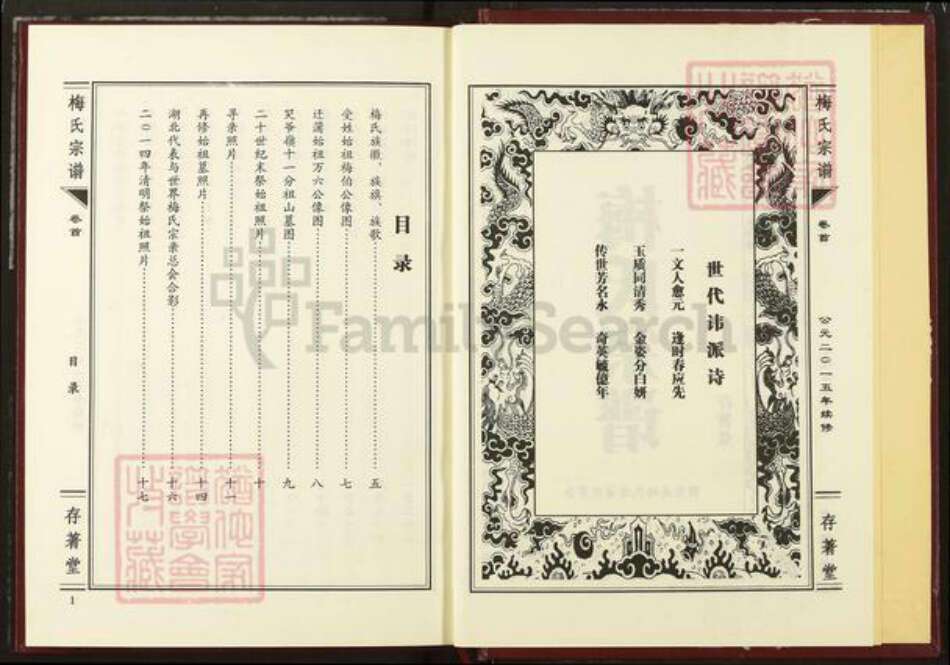 梅氏宗谱
卷首
公元二〇一五年续修
存著堂
世代讳派诗
一文人愈元 逢时春应先
玉质同清秀 金姿分白妍
传世芳名永 奇英毓億年
目录
梅氏族徽、族旗、族歌……五
受姓始祖梅伯公像图……七
迁蒲始祖万六公像图……八
笅爷嶺十一分祖山墓图……九
二十世纪末祭始祖照片……十
寻亲照片……十一
再修始祖墓照片……十四
湖北代表与世界梅氏宗亲总会合影……十六
二〇一四年清明祭始祖照片……十七
梅氏宗谱
卷首
目录
存著堂
1
FamilySearch